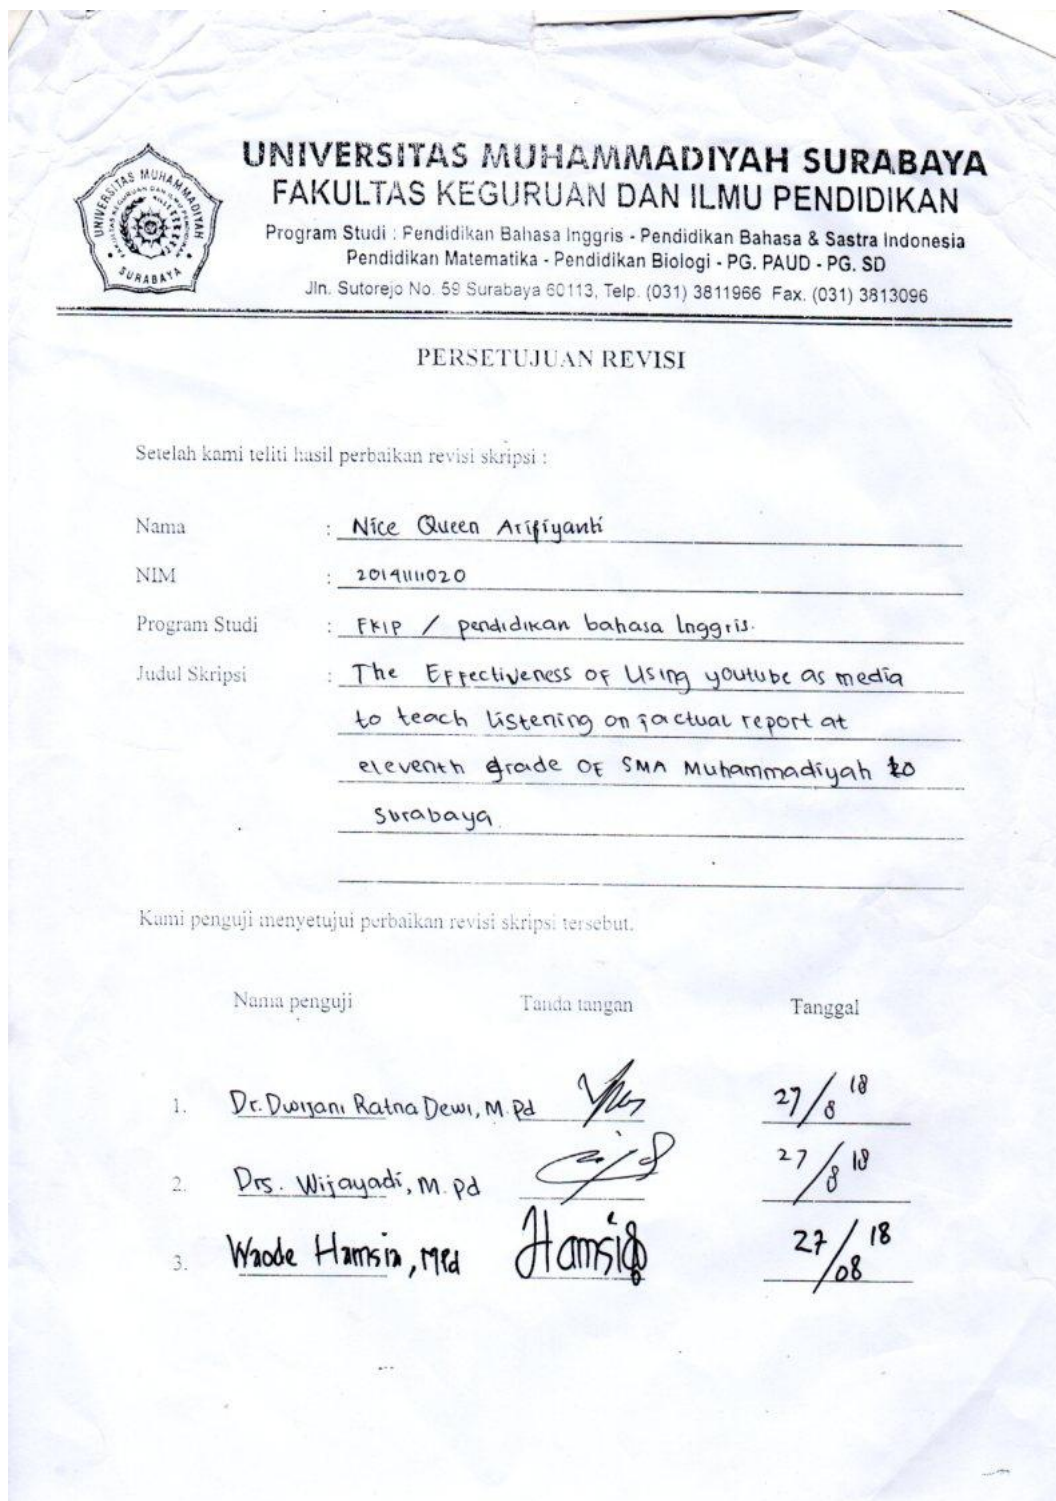 UNIVERSITAS MUHAMMADIYAH SURABAYA
FAKULTAS KEGURUAN DAN ILMU PENDIDIKAN
Program Studi : Pendidikan Bahasa Inggris - Pendidikan Bahasa & Sastra Indonesia
Pendidikan Matematika - Pendidikan Biologi - PG. PAUD - PG. SD
Jln. Sutorejo No. 59 Surabaya 60113, Telp. (031) 3811966 Fax. (031) 3813096
UNIVERSITAS MUHAMMADIYAH
SURABAYA
PERSETUJUAN REVISI
Setelah kami teliti hasil perbaikan revisi skripsi :
Nama : Nice Queen Arifiyanti
NIM : 20141111020
Program Studi : FKIP / pendidikan bahasa Inggris.
Judul Skripsi : The Effectiveness of Using youtube as media
to teach listening on factual report at
eleventh grade of SMA Muhammadiyah 10
Surabaya
Kami penguji menyetujui perbaikan revisi skripsi tersebut.
Nama penguji Tanda tangan Tanggal
1. Dr. Dwijani Ratna Dewi, M.Pd 27/8 18
2. Drs. Wijayadi, M.Pd 27/8 18
3. Waode Hamsia, MPd Hamsia 27/08 18